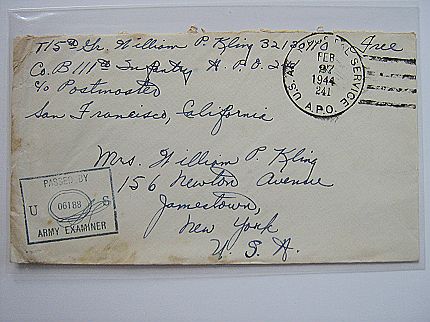 T/5th Gr. William P. Kling Free
Co. B 111th Infantry A.P.O. 241
c/o Postmaster
San Francisco, California
U.S. ARMY POSTAL SERVICE
FEB
27
1944
241
A.P.O.
Mrs. William P. Kling
156 Newton Avenue
Jamestown,
New York
U. S. A.
PASSED BY
U 06188 S
ARMY EXAMINER